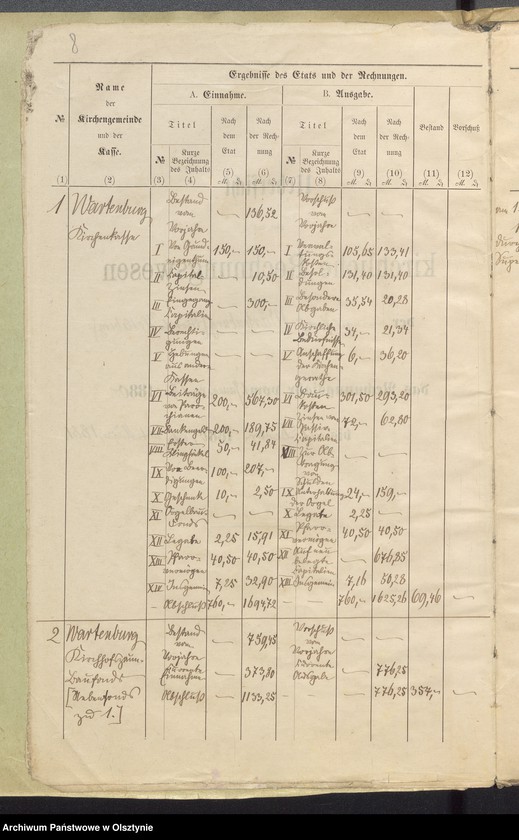 8
Ergebnisse des Etats und der Rechnungen.
Name der Kirchengemeinde und der Kasse.
A. Einnahme. B. Ausgabe.
№ Titel Nach dem Etat Nach der Rechnung Titel Nach dem Etat Nach der Rechnung Bestand Vorschuß
№ Kurze Bezeichnung des Inhalts № Kurze Bezeichnung des Inhalts
(1) (2) (3) (4) (5) (6) (7) (8) (9) (10) (11) (12)
1 Wartenburg Kirchenkasse
Bestand vom Vorjahre — 136,52 Vorschuß vom Vorjahre — —
I 150,— 150,— I 105,65 133,41
II Kapital-Zinsen — 10,50 II Besoldungen 131,40 131,40
III Kapitalien — 300,— III Besondere Abgaben 35,54 20,28
IV — — IV Kirchliche Bedürfnisse 34,— 21,34
V Hebungen aus andern Kassen — — V Anschaffung der Kirchengeräthe 6,— 36,20
VI Beiträge 200,— 567,30 VI Baukosten 301,50 293,20
VII Bankengeld 200,— 189,75 VII Zinsen von Passiv-Capitalien 72,— 62,80
VIII Klingsäckel 50,— 41,84 VIII Zur Abtragung von Schulden — —
IX 100,— 207,—
X Geschenk 10,— 2,50 IX Unterhaltung der Orgel 24,— 159,—
XI Orgelbau-Fonds — — X Legate 2,25 —
XII Legate 2,25 15,91 XI Pfarrvermögen 40,50 40,50
XIII Pfarrvermögen 40,50 40,50 XII Auf neu belegte Capitalien — 676,85
XIV Insgemein 7,25 32,90 XIII Insgemein 7,16 50,28
— Abschluß 760,— 1694,72 — — 760,— 1625,26 69,46 —
2 Wartenburg Baufonds [Nebenfonds zu 1.]
Bestand vom Vorjahre — 759,45 Vorschuß vom Vorjahre — —
Einnahme — 373,80 Ausgabe — 776,25
Abschluß — 1133,25 — 776,25 357,— —
Archiwum Państwowe w Olsztynie